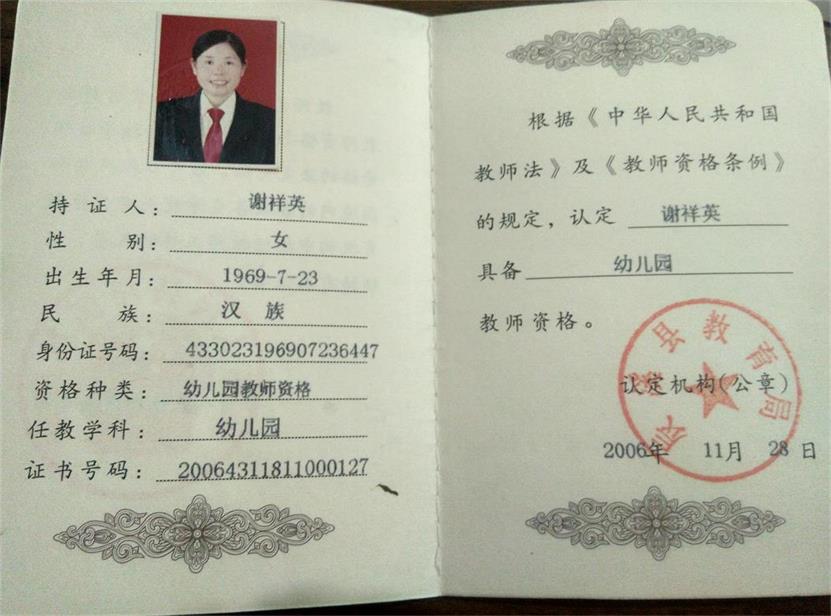 持证人：谢祥英
性别：女
出生年月：1969-7-23
民族：汉 族
身份证号码：433023196907236447
资格种类：幼儿园教师资格
任教学科：幼儿园
证书号码：20064311811000127
根据《中华人民共和国
教师法》及《教师资格条例》
的规定，认定 谢祥英
具备 幼儿园
教师资格。
县教育局
认定机构(公章)
2006年 11月 28日